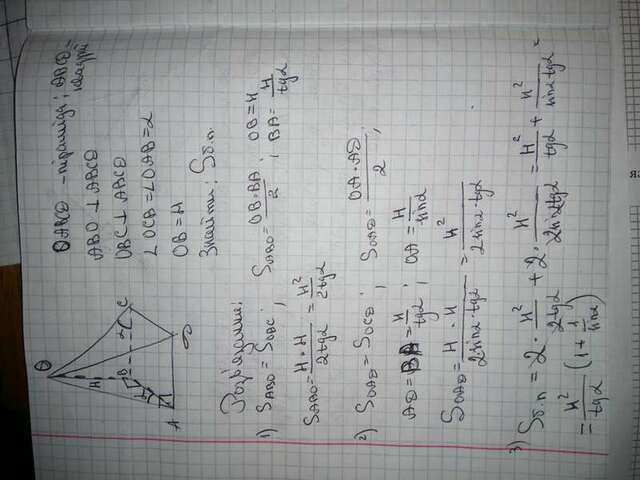 O
H
B
α
C
A
D
OABCD - піраміда; ABCD - квадрат
ABO ⊥ ABCD
OBC ⊥ ABCD
∠OCB = ∠OAB = α
OB = H
Знайти: Sб.п.
Розв'язання:
1) S_ABO = S_OBC; S_ABO = OB·BA/2; OB = H
BA = H/tgα
S_ABO = H·H/2tgα = H²/2tgα
2) S_OAD = S_OCD; S_OAD = OA·AD/2;
AD = BA = H/tgα; OA = H/sinα
S_OAD = H·H/2sinα·tgα = H²/2sinα·tgα
3) Sб.п = 2·H²/2tgα + 2·H²/2sinαtgα = H²/tgα + H²/sinα·tgα =
= H²/tgα (1 + 1/sinα)